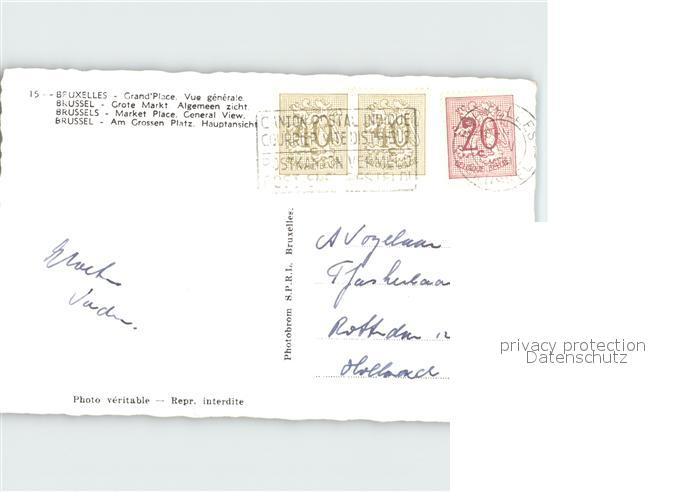 15 - BRUXELLES - Grand'Place. Vue générale.
BRUSSEL - Grote Markt. Algemeen zicht.
BRUSSELS - Market Place. General View.
BRUSSEL - Am Grossen Platz. Hauptansicht
40
40
20
BELGIQUE-BELGIE
CANTON POSTAL INDIQUE
COURRIER VITE DISTRIBUE
POSTKANTON VERMELD
Photobrom S.P.R.L. Bruxelles.
A Vogelaar
Rotterdam 12
Holland
Groeten
Photo véritable — Repr. interdite
privacy protection
Datenschutz